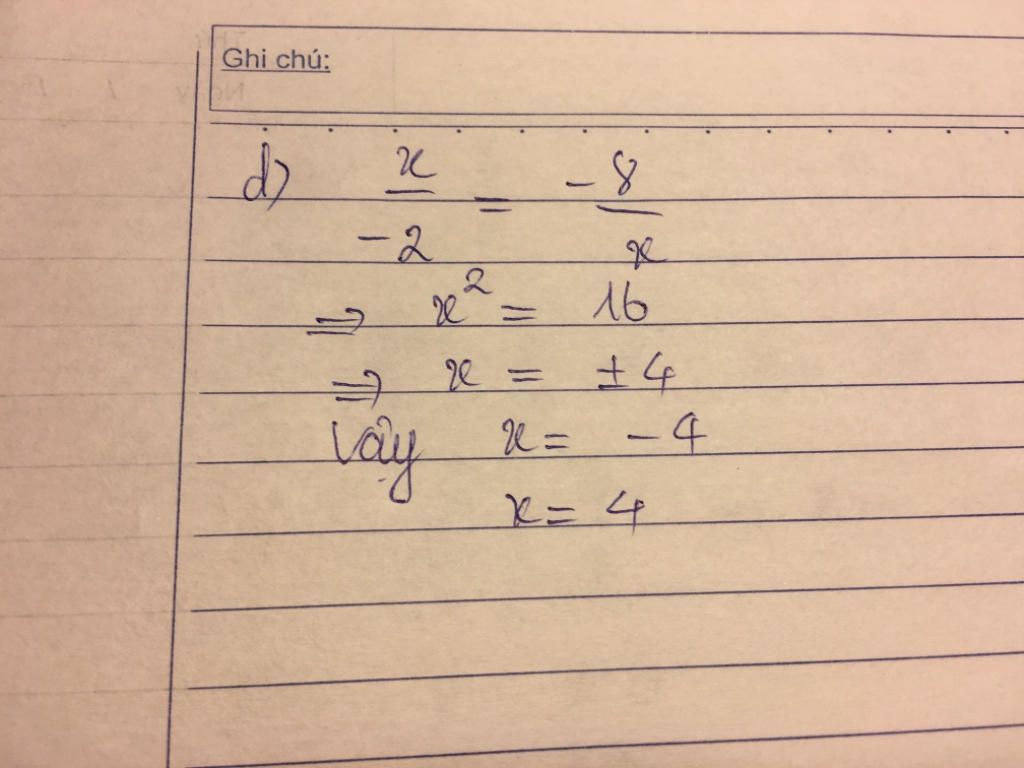 Ghi chú:
d) x/-2 = -8/x
⇒ x² = 16
⇒ x = ±4
Vậy x = -4
x = 4